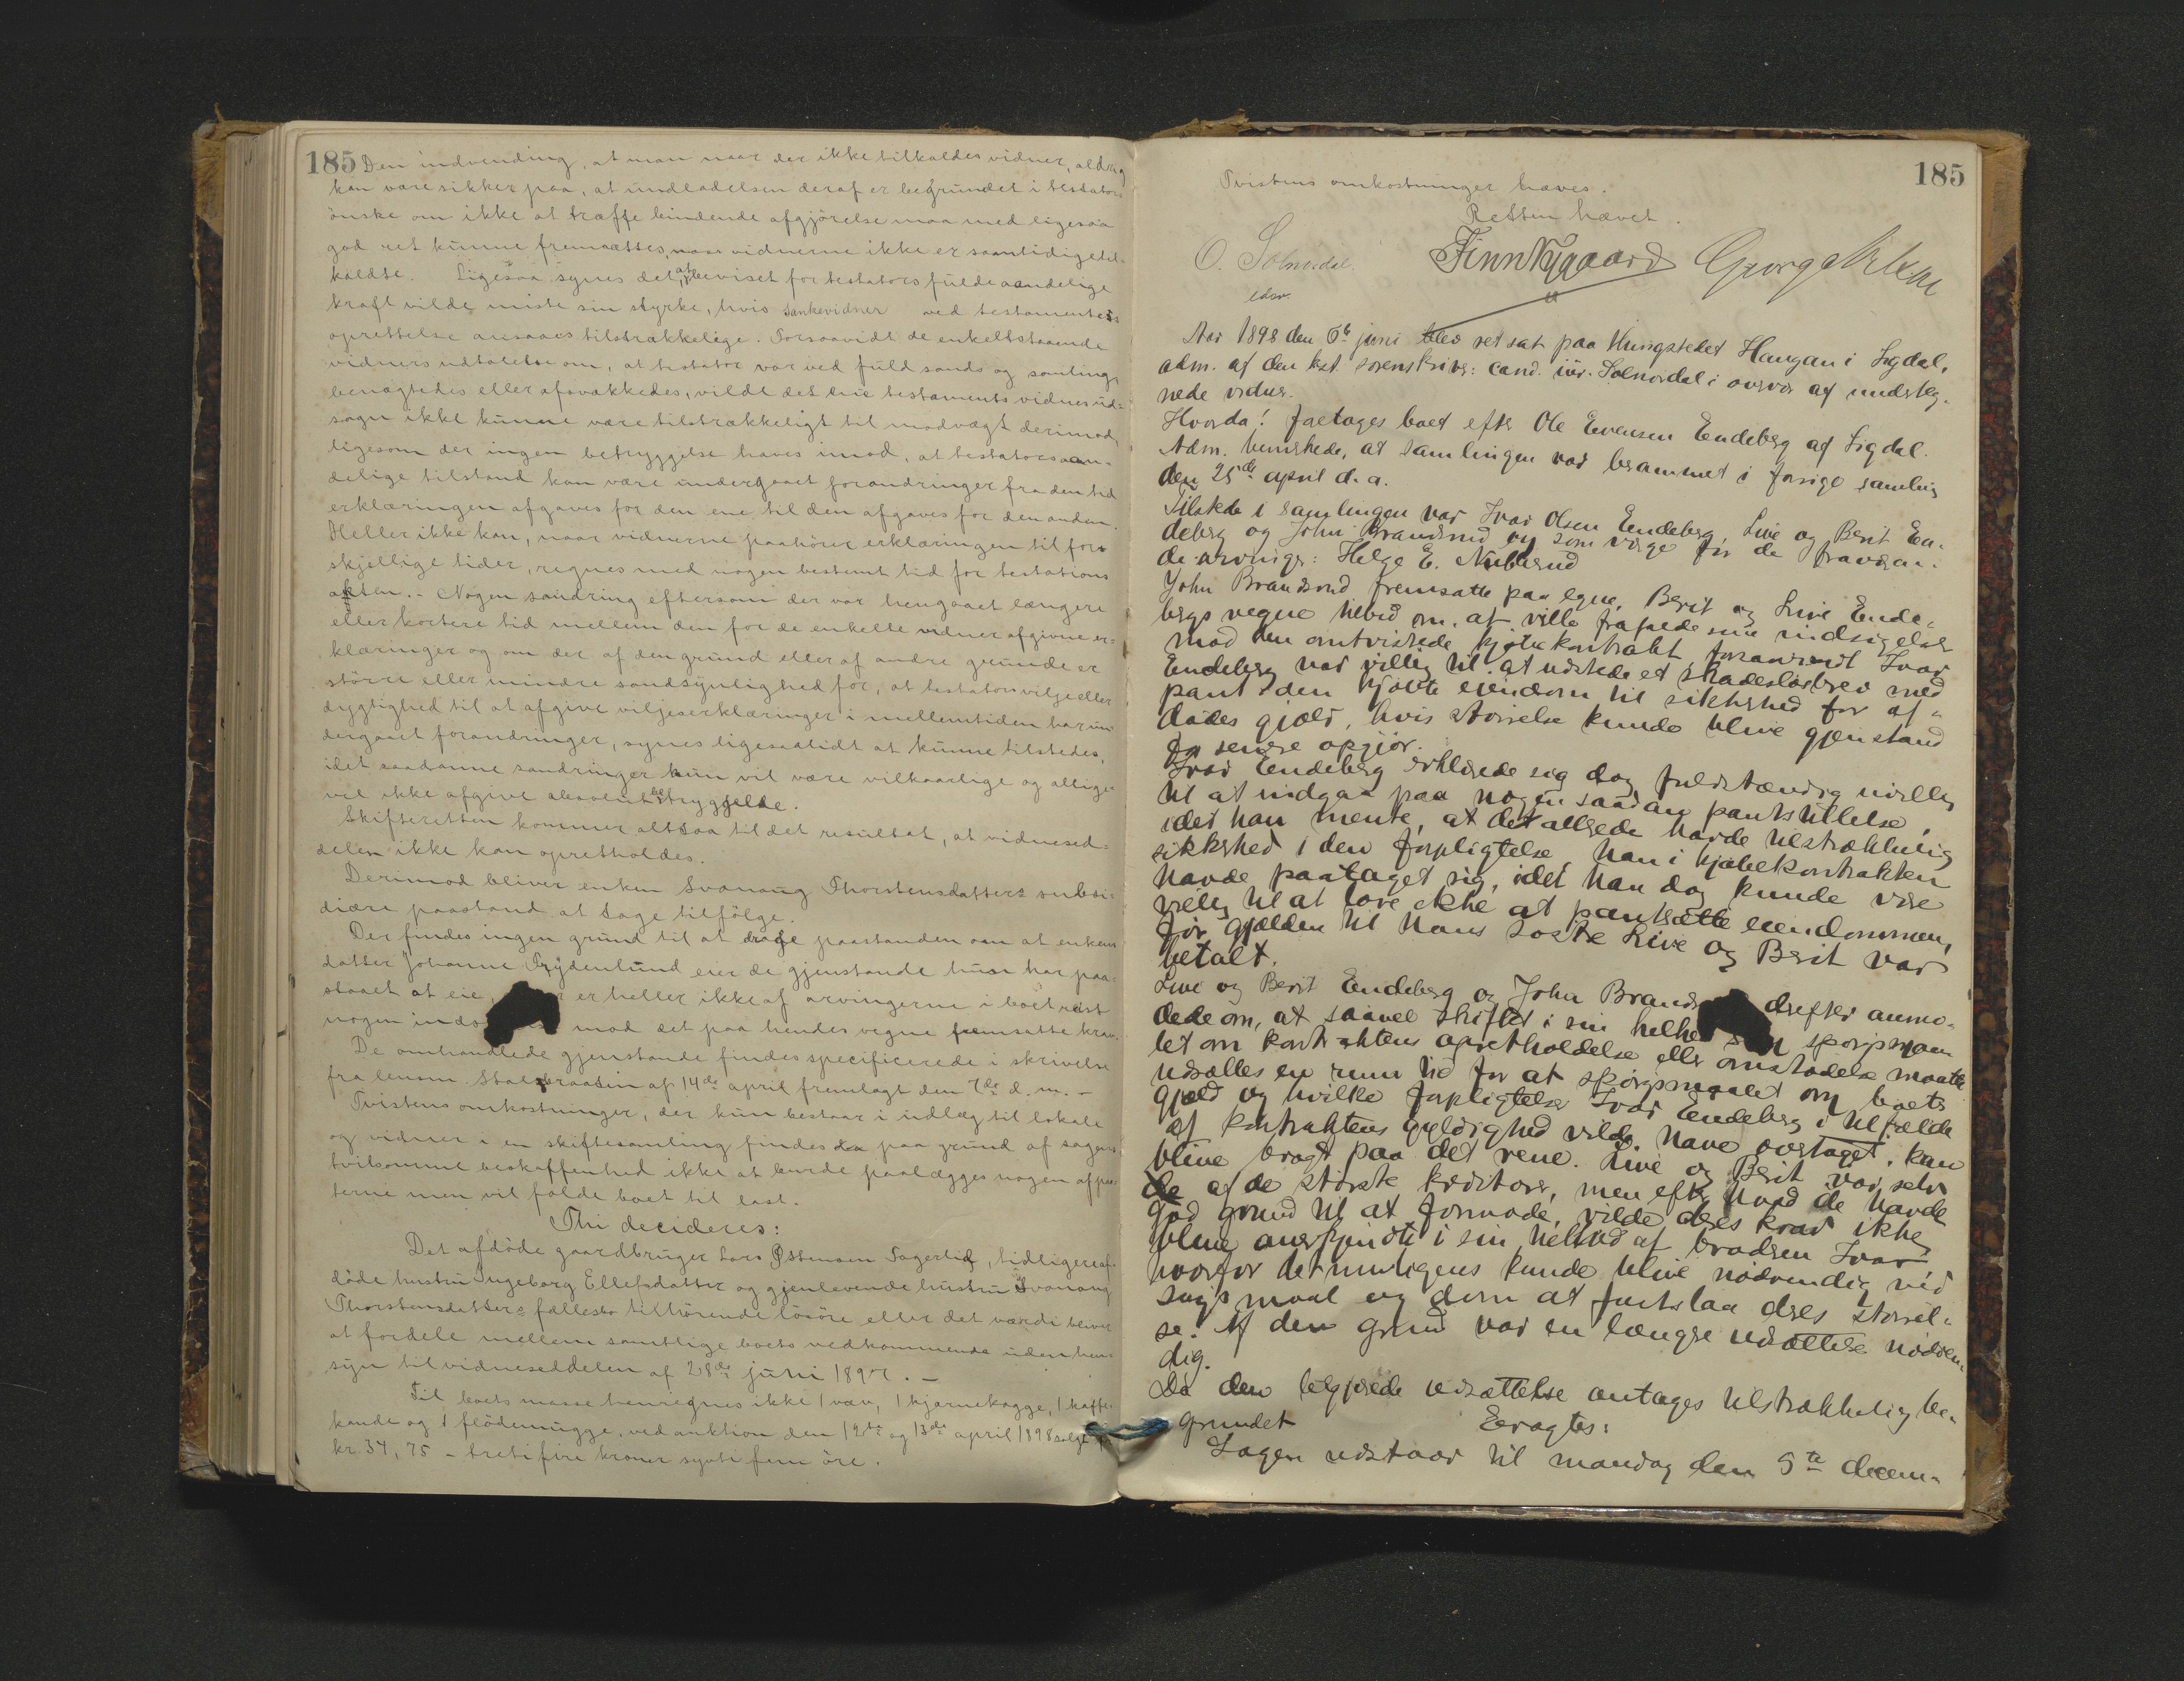 185 Den indvending, at man naar der ikke tilkaldes vidner, aldrig
kan være sikker paa, at undladelsen deraf er begrundet i testators
önske om ikke at træffe bindende afgjörelse maa med ligesaa
god ret kunne fremsættes, naar vidnerne ikke er samtidige til-
kaldte. Ligesaa synes det, at beviset for testators fulde aandelige
kraft vilde miste sin styrke, hvis vidner ved testamentets
oprettelse ansaaes tilstrækkelige. Forsaavidt de enkeltstaaende
vidners udtalelse om, at testator var ved fuld sands og samling,
benægtedes eller afsvækkedes, vilde det ene testamentsvidnes ud-
sagn ikke kunne være tilstrækkeligt til modvægt derimod,
ligesom der ingen betryggelse haves imod, at testators aan-
delige tilstand kan være undergaaet forandringer fra den tid
erklæringen afgaves for den ene til den afgaves for den anden.
Heller ikke kan, naar vidnerne paahörer erklæringen til for-
skjellige tider, regnes med nogen bestemt tid for testations
akten. - Nogen sondring eftersom der var hengaaet længere
eller kortere tid mellem den for de enkelte vidner afgivne er-
klæringer og om der af den grund eller af andre grunde er
större eller mindre sandsynlighed for, at testators vilje eller
dygtighed til at afgive viljeserklæringer i mellemtiden har un-
dergaaet forandringer, synes ligesaalidt at kunne tilstedes,
idet saadanne sondringer kun vil være vilkaarlige og allige-
vel ikke afgive absolut betryggelse.
Skifteretten kommer altsaa til det resultat, at vidnesed-
delen ikke kan opretholdes.
Derimod bliver enken Svanaug Thorstensdatters subsi-
diære paastand at tage tilfölge.
Der findes ingen grund til at drage paastanden om at enkens
datter Johanne Frydenlund eier de gjenstande hun har paa-
staaet at eie, er heller ikke af arvingerne i boet reist
nogen mod det paa hendes vegne fremsatte krav.
De omhandlede gjenstande findes specificerede i skrivelse
fra lensm. Stalsbraaten af 14de april fremlagt den 7de d. m. -
Tvistens omkostninger, der kun bestaar i udlæg til lokale
og vidner i en skiftesamling findes da paa grund af sagens
tvilsomme beskaffenhed ikke at burde paalægges nogen af par-
terne men vil falde boet til last.
Thi decideres:
Det afdöde gaardbruger Lars Østensen Sagerlid, tidligere af-
döde hustru Ingeborg Ellefsdatter og gjenlevende hustru Svanaug
Thorstensdatters fællesbo tilhörende lösöre eller det værdi bliver
at fordele mellem samtlige boets vedkommende uden hen-
syn til vidneseddelen af 28de juni 1897. -
Til boets masse henregnes ikke 1 væv, 1 kjærnekagge, 1 kaffe-
kande og 1 flödemugge, ved auktion den 12te og 13de april 1898 solgt for
kr. 34,75 - tretifire kroner sytti fem öre.
185
Tvistens omkostninger hæves.
Retten hævet.
O. Solnørdal Finn Nygaard George
edsv.
Aar 1898 den 6te juni blev ret sat paa thingstedet Haugan i Sigdal,
adm. af den kst. sorenskriver: cand. jur. Solnørdal i overvær af underteg-
nede vidner.
Hvorda! foretages boet efter Ole Evensen Endeberg af Sigdal.
Adm. bemærkede, at samlingen var berammet i forrige samling
den 25de april d. a.
Tilstede i samlingen var Ivar Olsen Endeberg, Live og Berit En-
deberg og John Brandsrud og som værge for de fraværen-
de arvinger: Helge E. Nubberud
John Brandsrud fremsatte paa egne, Berit og Live Ende-
bergs vegne tilbud om, at ville frafalde sine indsigelser
mod den omtvistede kjøbekontrakt forsaavidt Ivar
Endeberg var villig til at udstede et skadesløsbrev med
pant i den kjøbte eiendom til sikkerhed for af-
dødes gjæld, hvis størrelse kunde blive gjenstand
for senere opgjør.
Ivar Endeberg erklærede sig dog fuldstændig uvillig
til at indgaa paa nogen saadan pantstillelse,
idet han mente, at det allerede havde tilstrækkelig
sikkerhed i den forpligtelse, han i kjøbekontrakten
havde paataget sig, idet han dog kunde være
villig til at love ikke at pantsætte eiendommen,
før gjælden til hans søstre Live og Berit var
betalt.
Live og Berit Endeberg og John Brands derefter anmo-
dede om, at saavel skiftet i sin helhed spørgsmaa-
let om kontraktens opretholdelse eller omstødelse maatte
udsættes en rum tid for at spørgsmaalet om boets
gjæld og hvilke forpligtelser Ivar Endeberg i tilfælde
af kontraktens gyldighed vilde have overtaget, kan
blive bragt paa det rene. Live og Berit var selv
de af de største kreditorer, men efter hvad de havde
god grund til at formode, vilde deres krav ikke
blive anerkjendte i sin helhed af broderen Ivar,
hvorfor det muligens kunde blive nødvendig ved
søgsmaal og dom at fastslaa deres størrel-
se. Af den grund var en længere udsættelse nødven-
dig.
Da den begjærede udsættelse antages tilstrækkelig be-
grundet Eragtes:
Sagen udstaar til mandag den 5te decem-